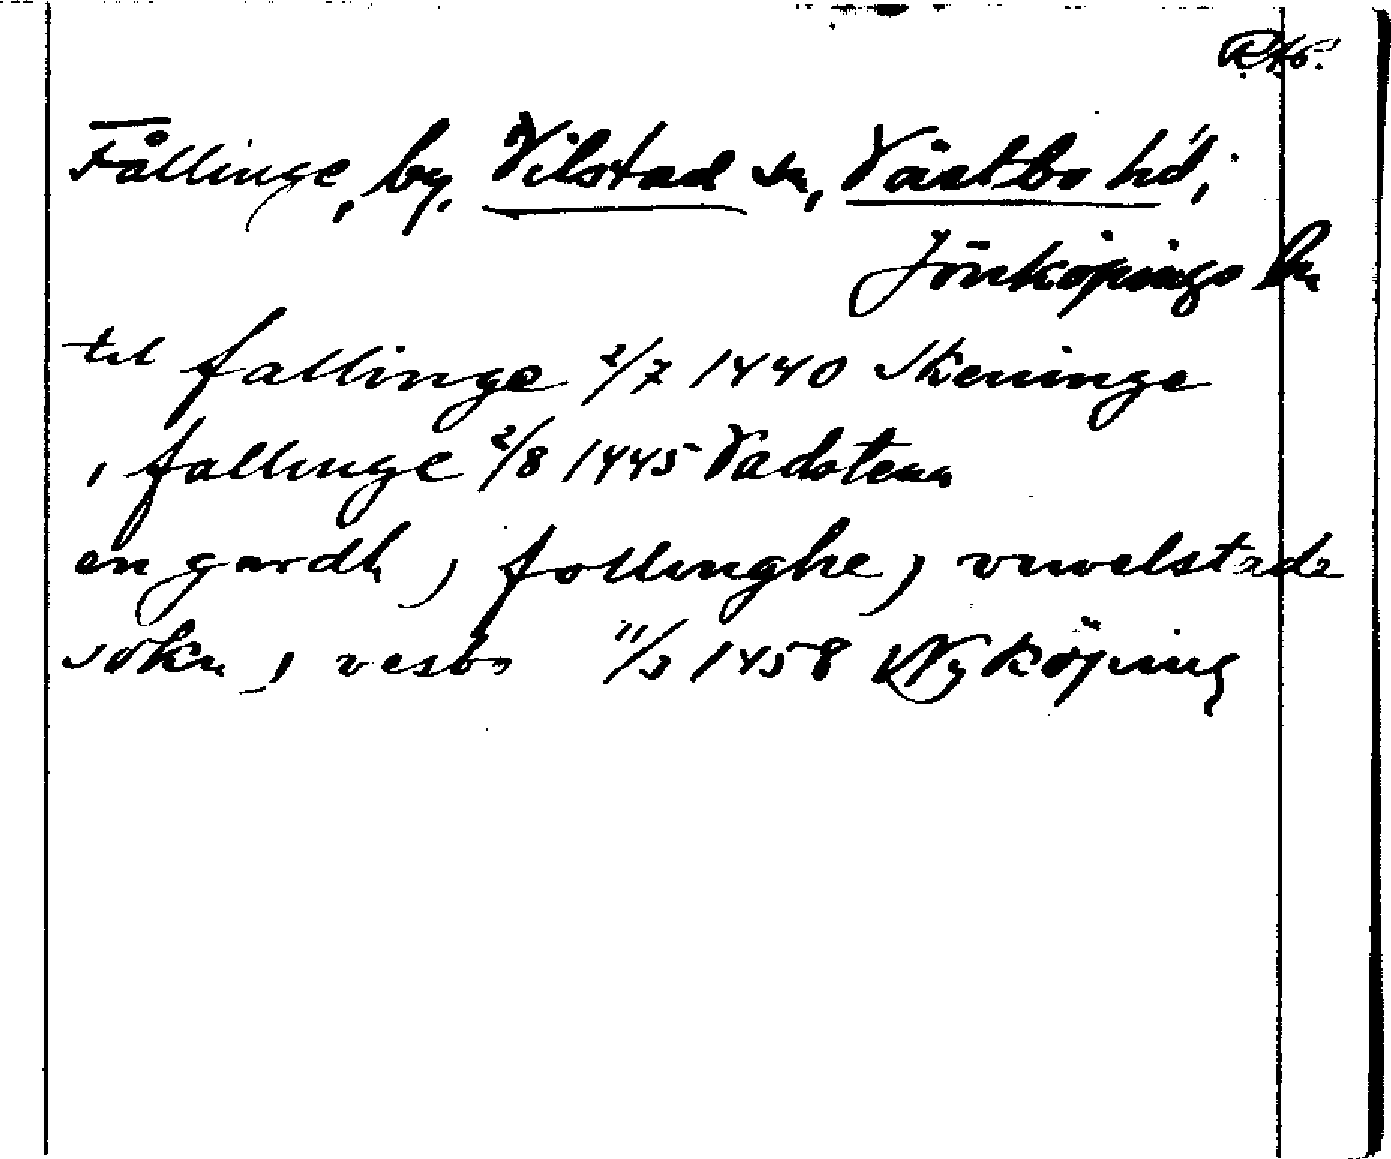 Fållinge, by, Vilstad sn, Västbo hd,
Jönköpings ln
til fallinge 2/7 1440 Skeninge
i fallinge 2/8 1445 Vadstena
en gardh j follinghe j
sokn j vesbo 11/3 1458 Nyköping